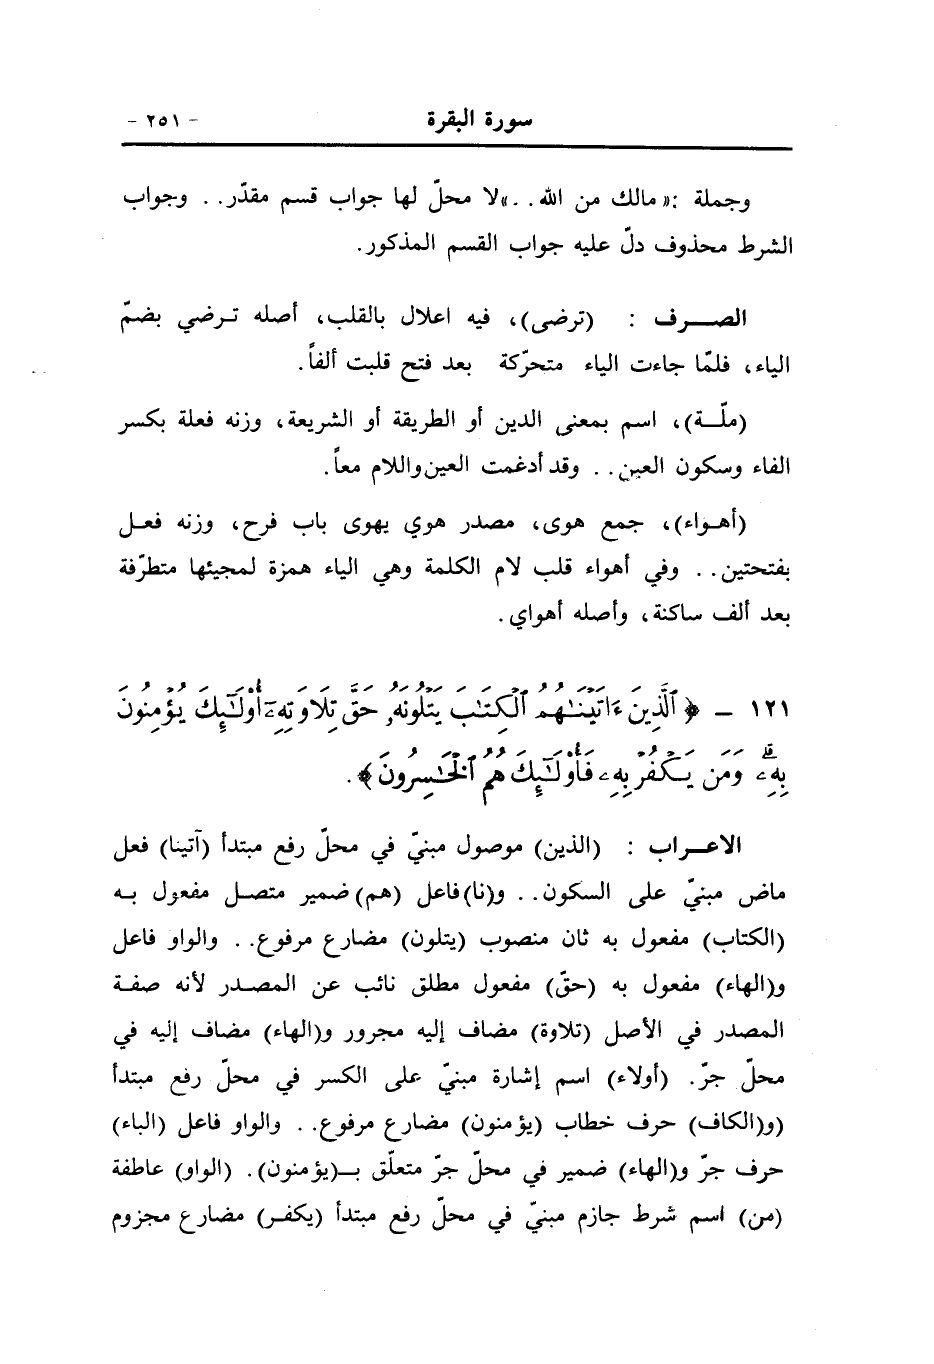 سورة البقرة - ٢٥١ -
وجملة :« مالك من الله . . .»لا محلّ لها جواب قسم مقدّر . . وجواب
الشرط محذوف دلّ عليه جواب القسم المذكور.
الصــرف : (ترضى)، فيه اعلال بالقلب، أصله تـرضي بضمّ
الياء، فلمّا جاءت الياء متحرّكة بعد فتح قلبت ألفاً.
(ملّـة)، اسم بمعنى الدين أو الطريقة أو الشريعة، وزنه فعلة بكسر
الفاء وسكون العين . . وقد أدغمت العين واللام معاً.
(أهـواء)، جمع هوى، مصدر هوي يهوى باب فرح، وزنه فعـل
بفتحتين . . وفي أهواء قلب لام الكلمة وهي الياء همزة لمجيئها متطرّفة
بعد ألف ساكنة، وأصله أهواي.
١٢١ - ﴿ ٱلَّذِينَ ءَاتَيْنَٰهُمُ ٱلْكِتَٰبَ يَتْلُونَهُۥ حَقَّ تِلَاوَتِهِۦٓ أُوْلَٰٓئِكَ يُؤْمِنُونَ
بِهِۦۗ وَمَن يَكْفُرْ بِهِۦ فَأُوْلَٰٓئِكَ هُمُ ٱلْخَٰسِرُونَ ﴾.
الاعـراب : (الذين) موصول مبنيّ في محلّ رفع مبتدأ (آتينا) فعل
ماض مبنيّ على السكون . . و(نا) فاعل (هم) ضمير متصـل مفعول بـه
(الكتاب) مفعول به ثان منصوب (يتلون) مضارع مرفوع . . والواو فاعل
و(الهاء) مفعول به (حقّ) مفعول مطلق نائب عن المصـدر لأنه صفـة
المصدر في الأصل (تلاوة) مضاف إليه مجرور و(الهاء) مضاف إليه في
محلّ جرّ. (أولاء) اسم إشارة مبنيّ على الكسر في محلّ رفع مبتدأ
(و(الكاف) حرف خطاب (يؤمنون) مضارع مرفوع . . والواو فاعل (الباء)
حرف جرّ و(الهاء) ضمير في محلّ جرّ متعلّق بـ(يؤمنون). (الواو) عاطفة
(من) اسم شرط جازم مبنيّ في محلّ رفع مبتدأ (يكفـر) مضارع مجزوم